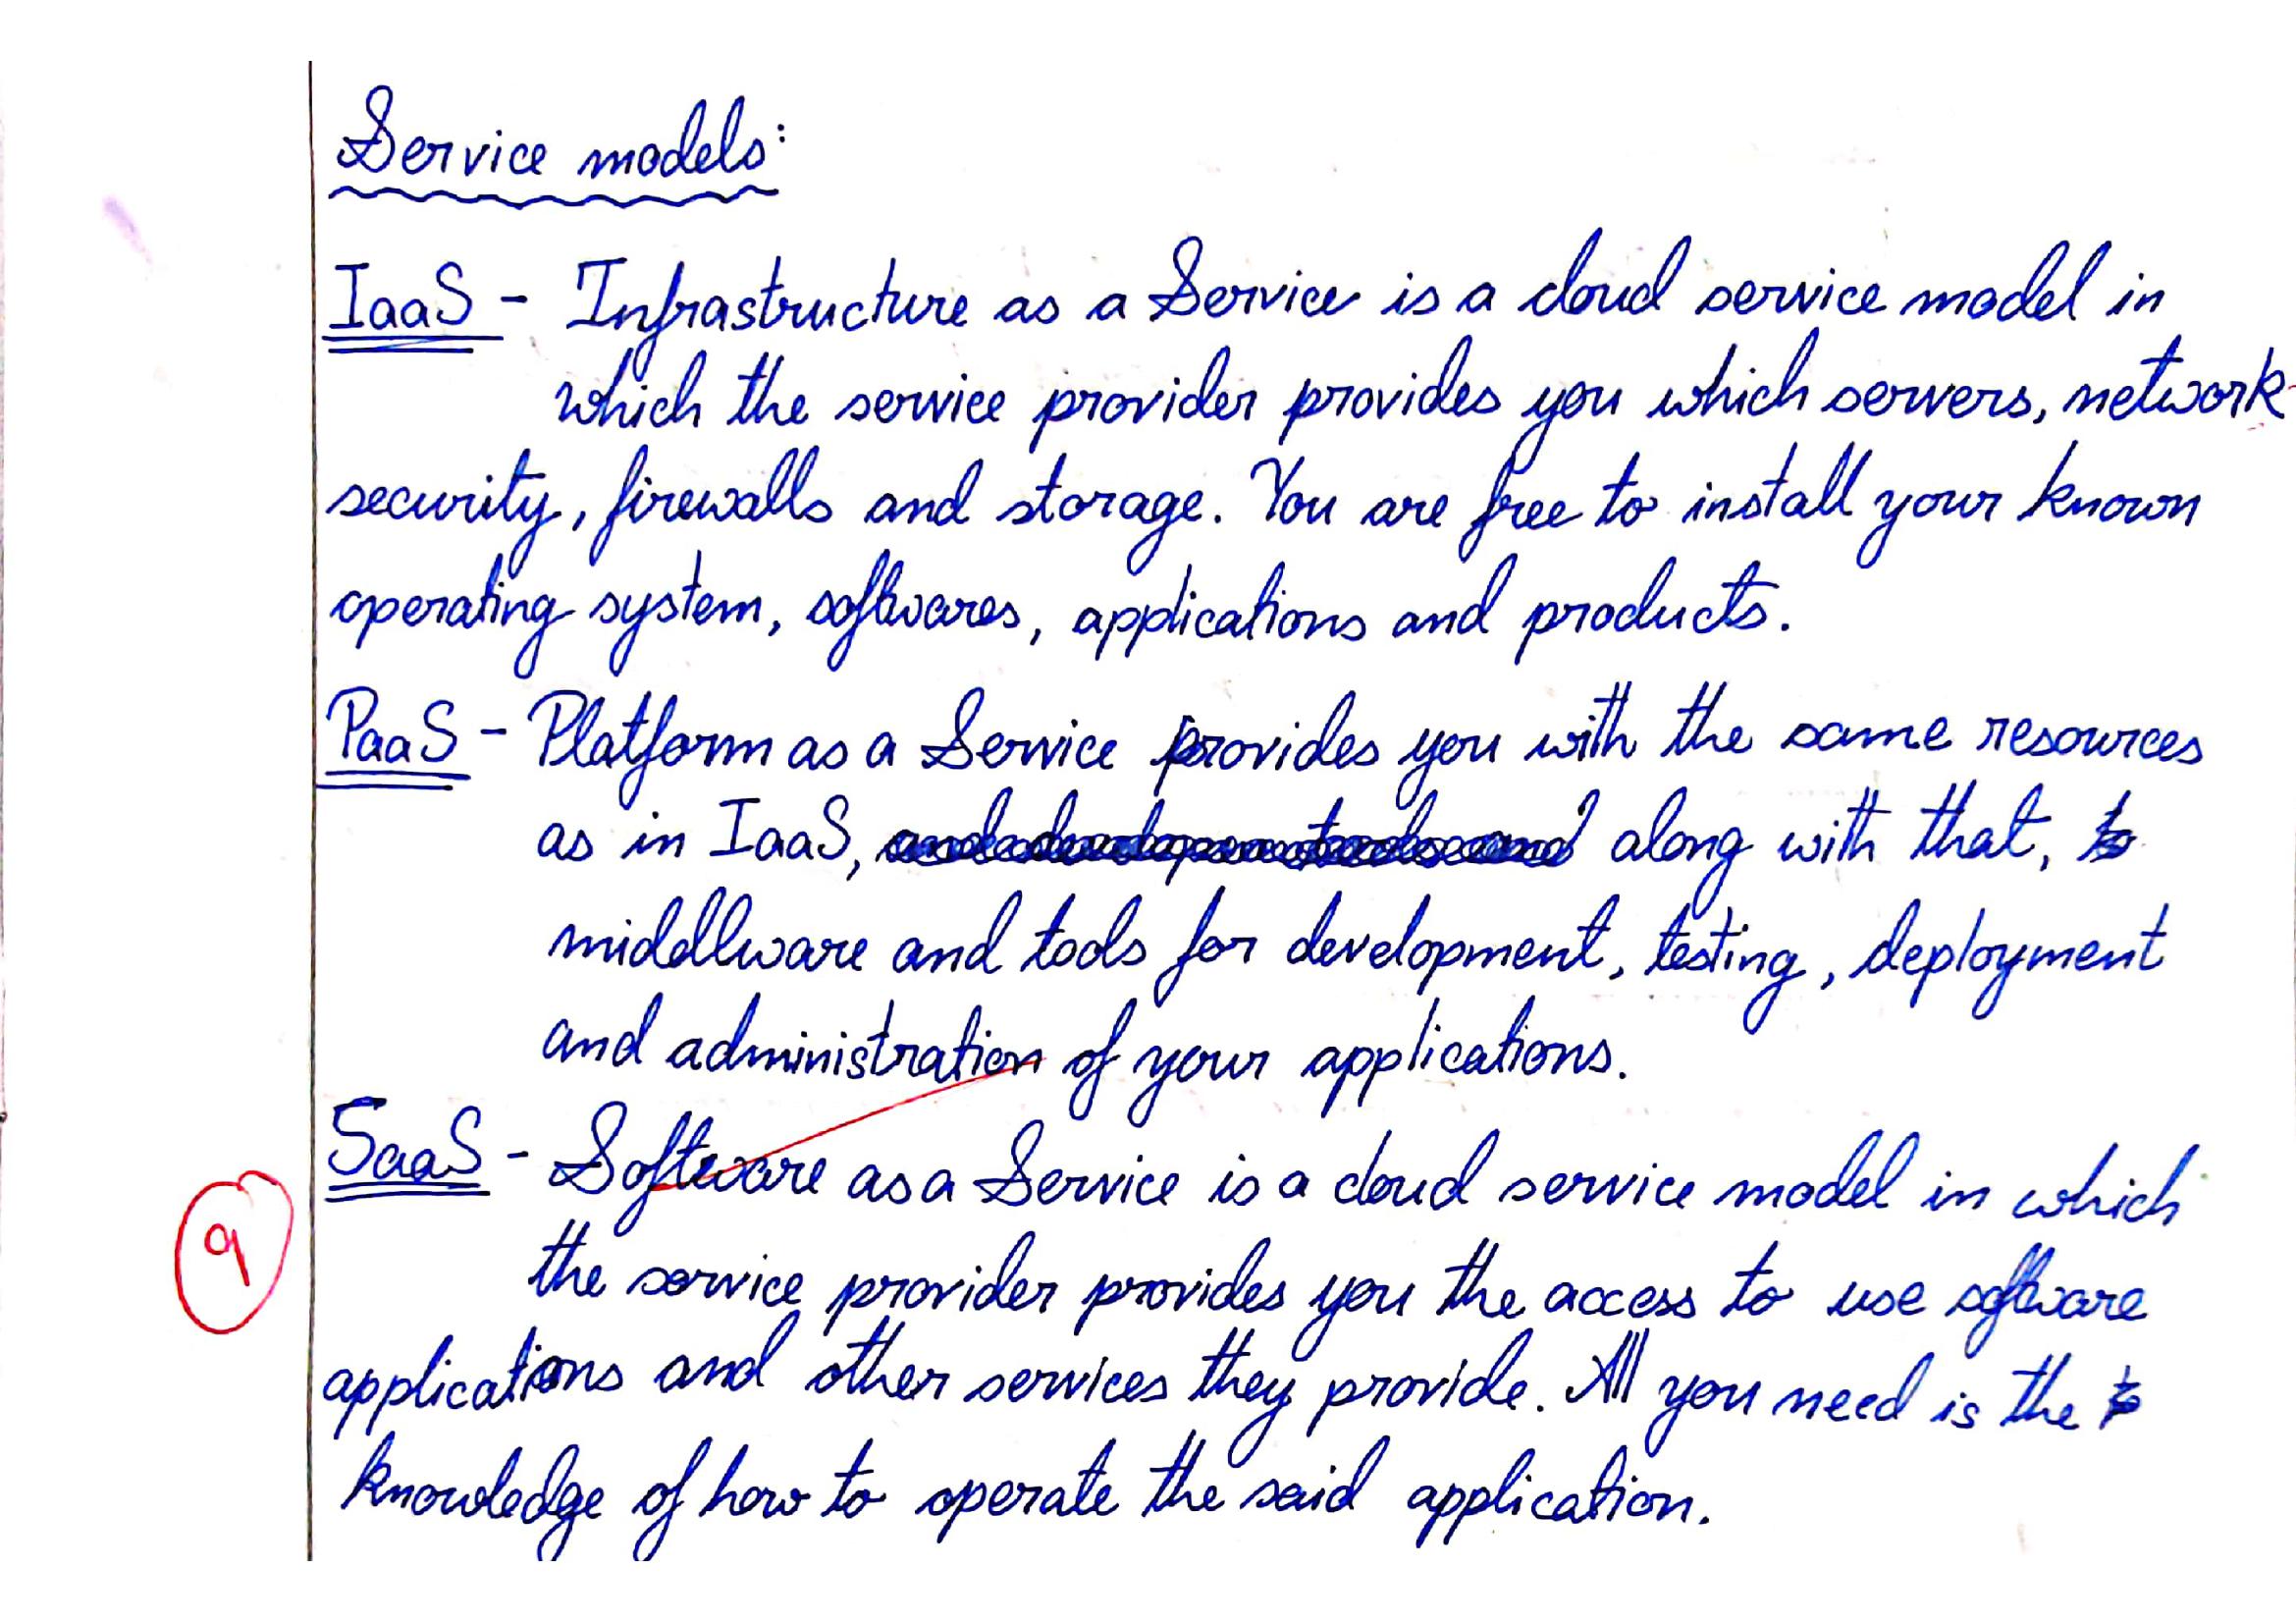 Service models:
IaaS - Infrastructure as a Service is a cloud service model in
which the service provider provides you which servers, network
security, firewalls and storage. You are free to install your known
operating system, softwares, applications and products.
PaaS - Platform as a Service provides you with the same resources
as in IaaS, along with that,
middleware and tools for development, testing, deployment
and administration of your applications.
SaaS - Software as a Service is a cloud service model in which
the service provider provides you the access to use software
9
applications and other services they provide. All you need is the
knowledge of how to operate the said application.